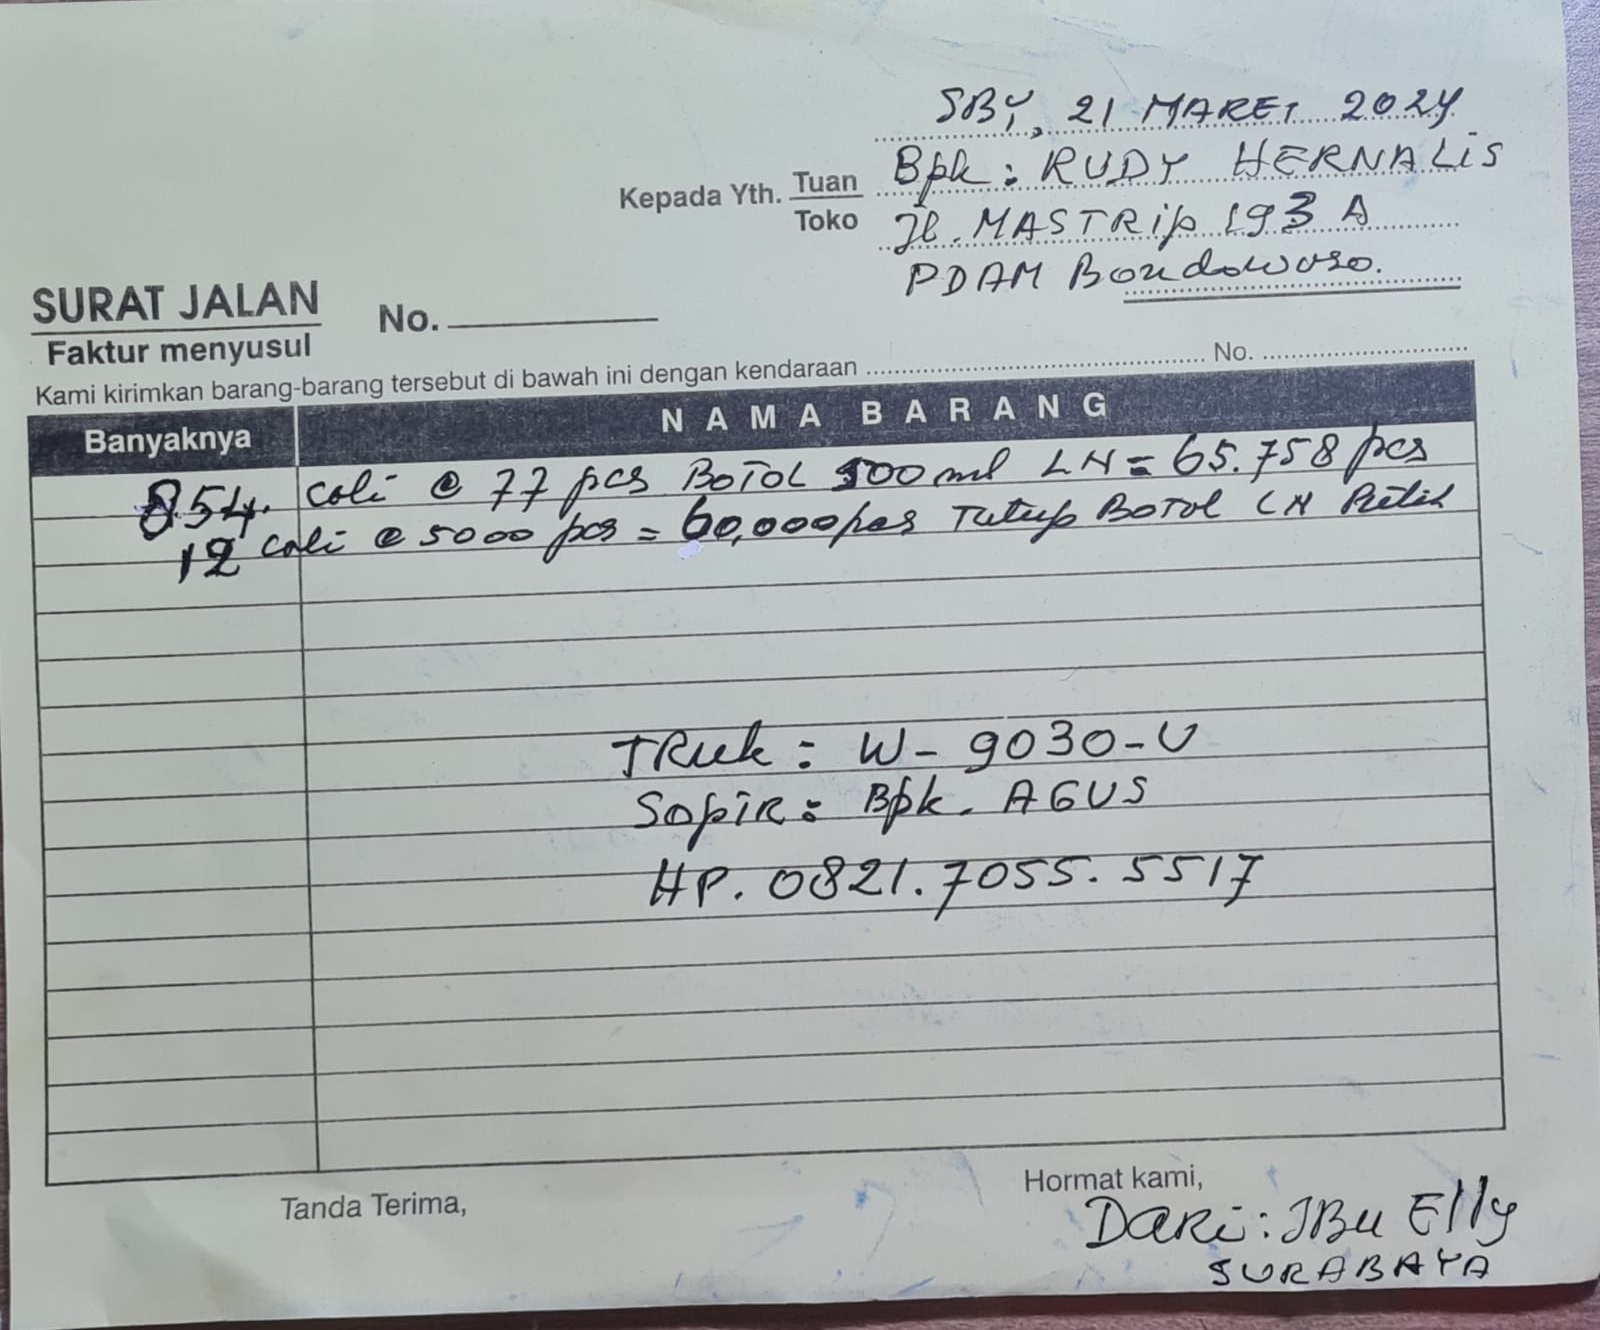 SBY, 21 MARET 2024
Kepada Yth. Tuan Bpk : RUDY HERNALIS
Toko Jl. MASTRip 193 A
PDAM Bondowoso.
SURAT JALAN No.
Faktur menyusul
Kami kirimkan barang-barang tersebut di bawah ini dengan kendaraan No.
Banyaknya NAMA BARANG
854. coli @ 77 pcs BOTOL 500 ml LN = 65.758 pcs
12 coli @ 5000 pcs = 60,000 pcs Tutup BOTOL LN Putih
TRuk : W - 9030 - U
SopiR : Bpk. AGUS
HP. 0821.7055.5517
Tanda Terima,
Hormat kami,
DaRi : IBu Elly
SURABAYA